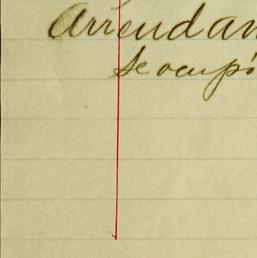 Arrendan
Se ocupó